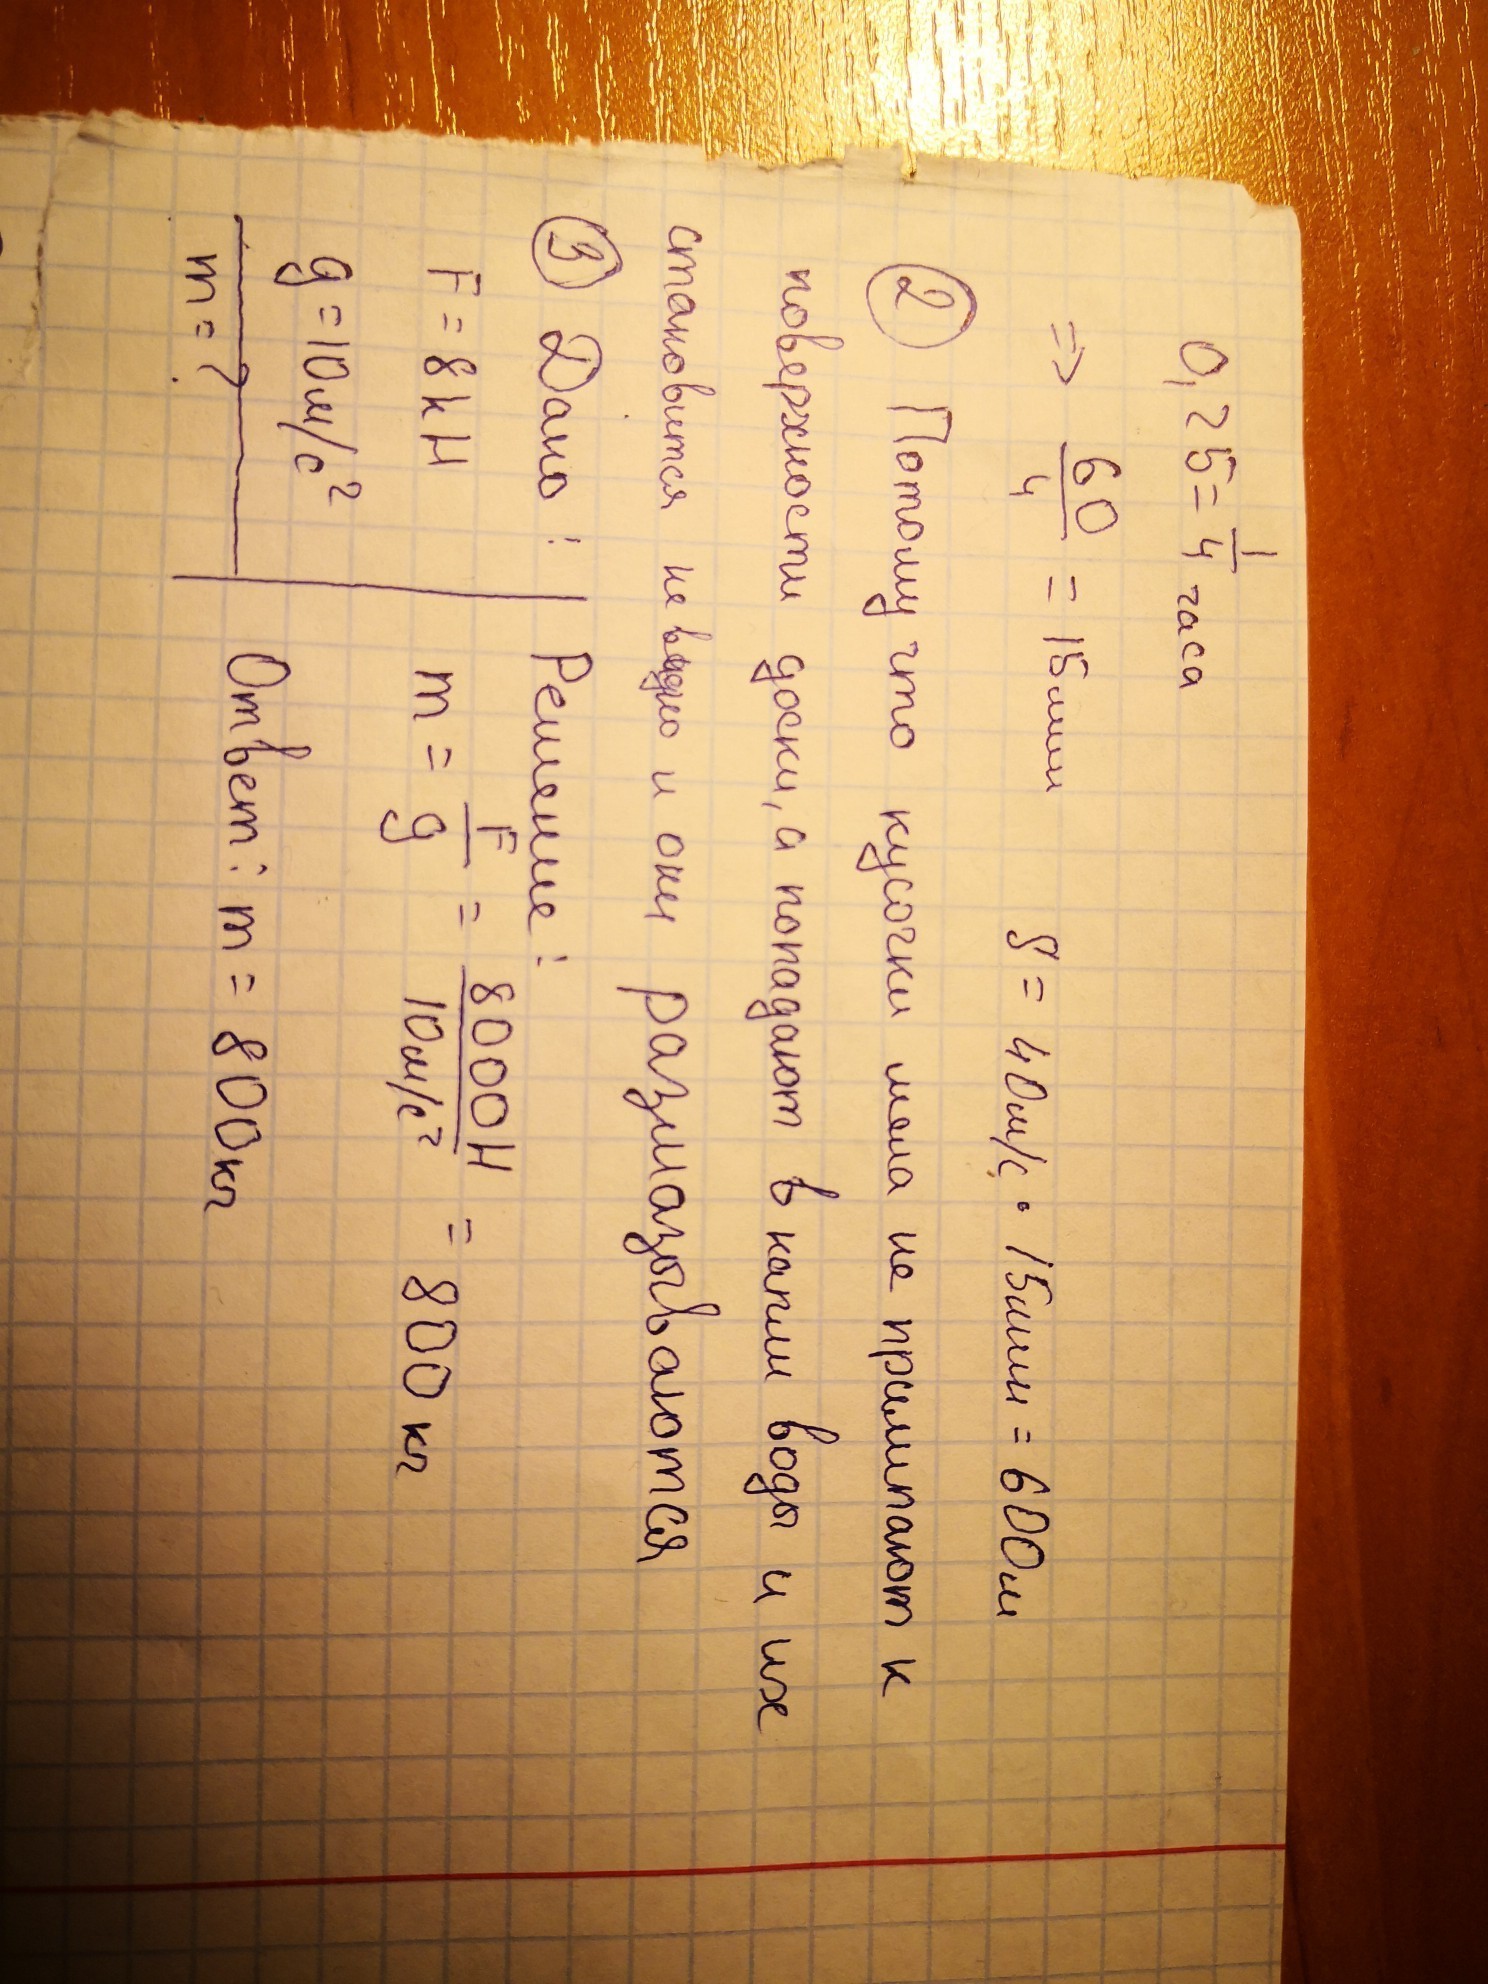 0,25 = 1/4 часа
=> 60/4 = 15мин S = 40м/с · 15мин = 600м
② Потому что кусочки мела не прилипают к
поверхности доски, а попадают в капли воды и их
становится не видно и они размазываются
③ Дано: Решение:
F = 8кН m = F/g = 8000Н/10м/с² = 800кг
g = 10м/с²
m = ? Ответ: m = 800кг